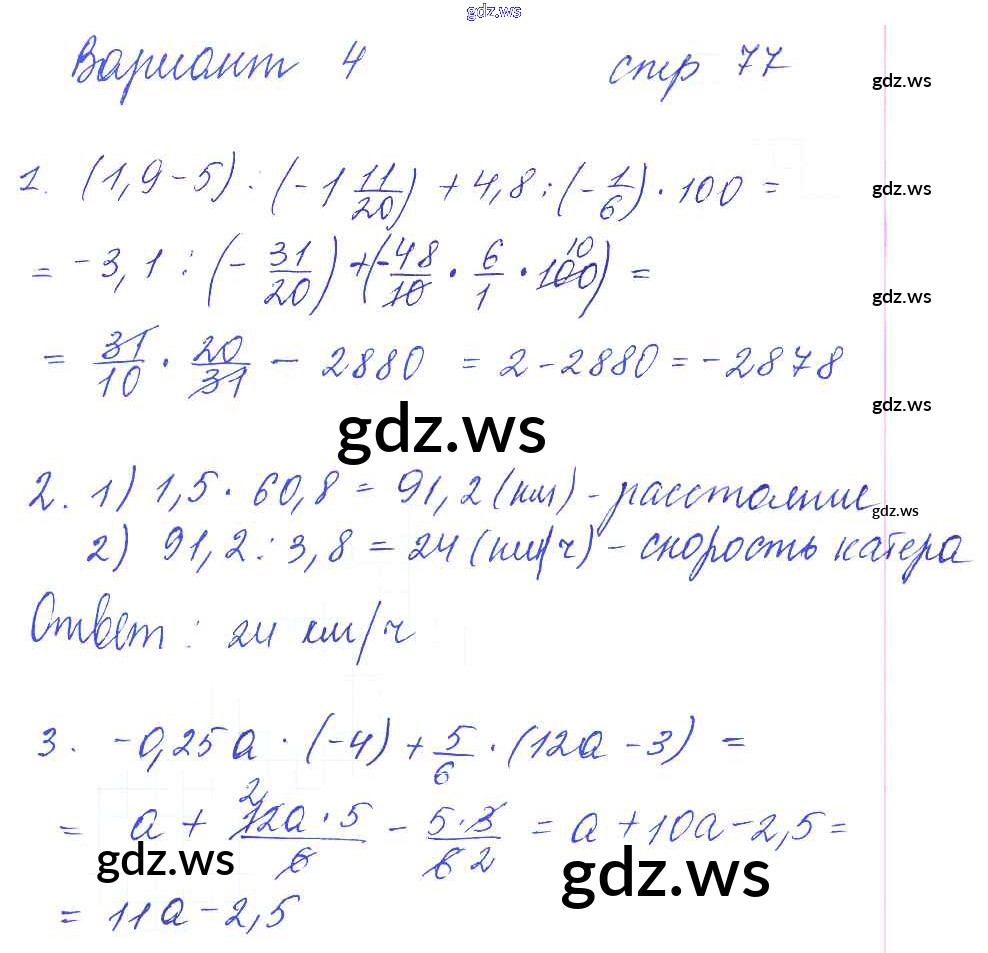 gdz.ws
Вариант 4 стр 77
gdz.ws
1. (1,9 - 5) : (-1 11/20) + 4,8 : (-1/6) · 100 =
gdz.ws
= -3,1 : (- 31/20) + (-48/10 · 6/1 · 100 10) =
gdz.ws
= 31/10 · 20/31 - 2880 = 2 - 2880 = -2878
gdz.ws
gdz.ws
2. 1) 1,5 · 60,8 = 91,2 (км) - расстояние
gdz.ws
2) 91,2 : 3,8 = 24 (км/ч) - скорость катера
Ответ : 24 км/ч
3. -0,25a · (-4) + 5/6 · (12a - 3) =
= a + 2 12a · 5/6 - 5·3/6 2 = a + 10a - 2,5 =
gdz.ws gdz.ws
= 11a - 2,5